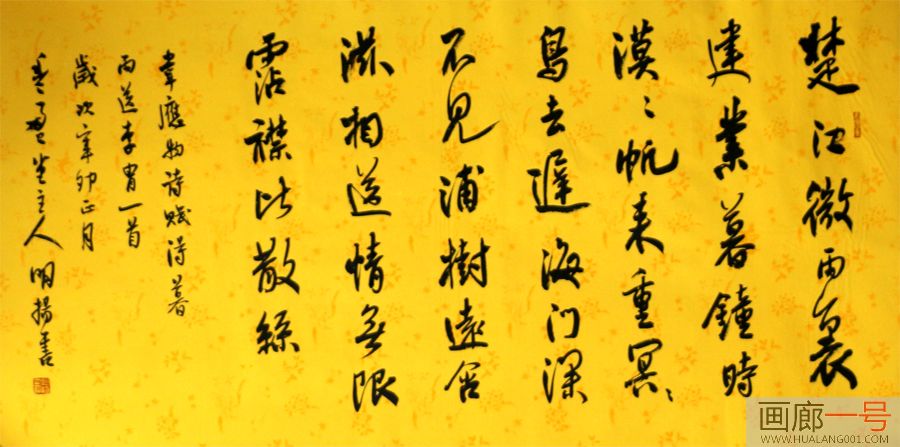 楚江微雨裏
建業暮鐘時
漠〻帆来重冥〻
鳥去遲海門深
不見浦樹遠含
滋相送情無限
霑襟比散絲
韋應物詩賦得暮
雨送李胄一首
歲次辛卯正月
主人明揚書
画廊一号
WWW.HUALANG001.COM